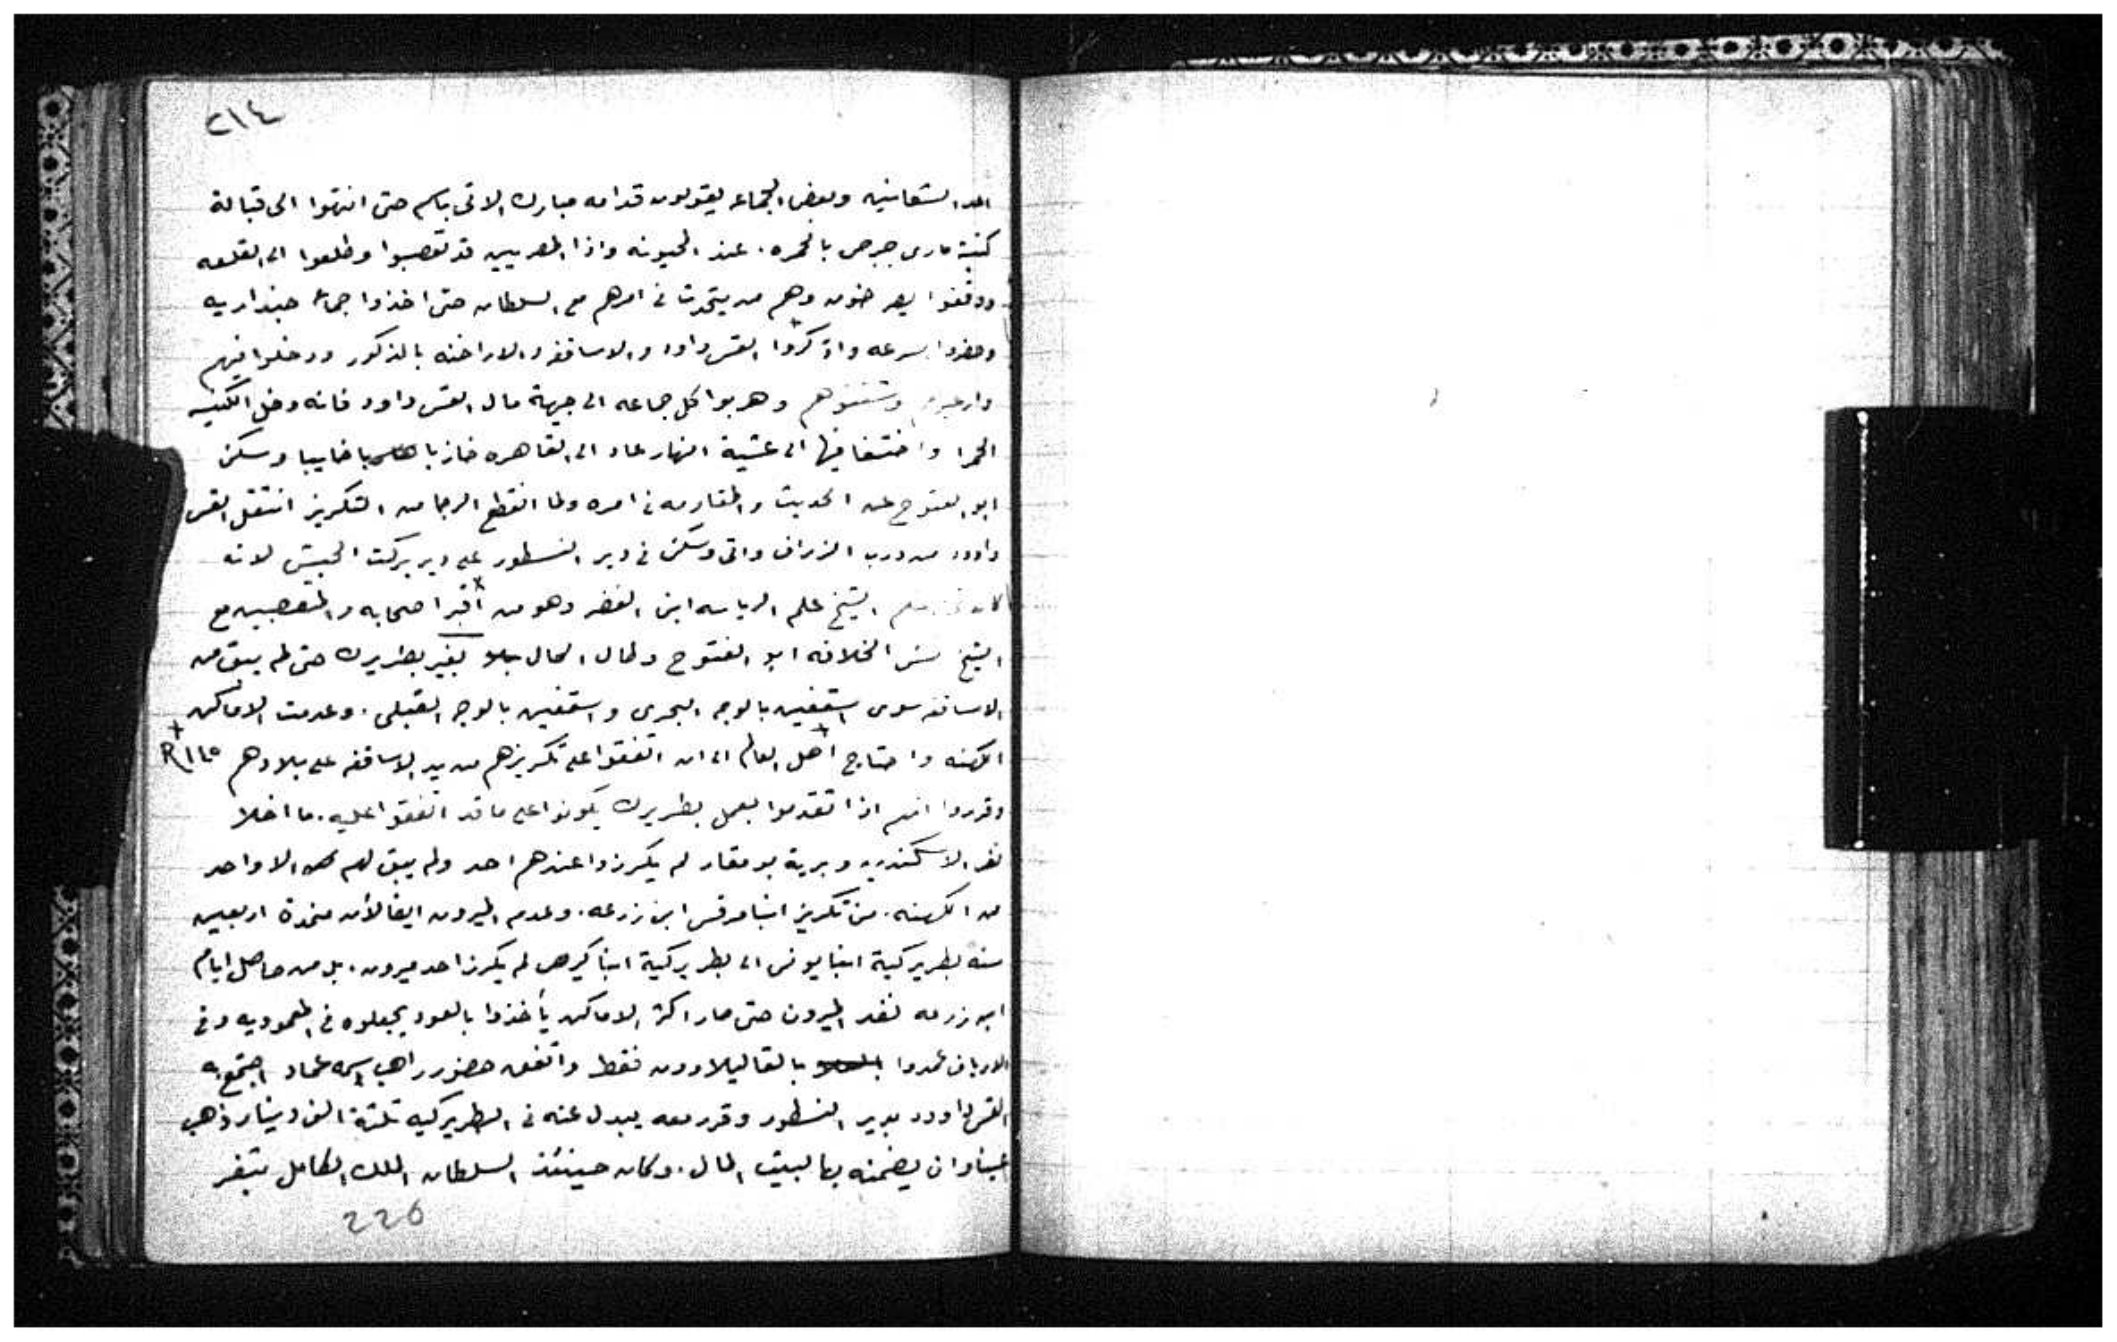 ٢١٤
احد الشعانين وبعض الجماعه يقولون قدامه مبارك الاتى باسم حتى انتهوا الى قبالة
كنيسة مارى جرجس بالحمره. عند واذا المصريين قد تعصبوا وطلعوا الى القلعه
ووقفوا وهم من يتحدث فى امرهم مع السلطان حتى اخذوا جماعه جنداريه
وحضروا بسرعه وادركوا القس داود والاساقفه والاراخنه بالذكور ودخلوا فيهم
وشتتوهم وهربوا كل جماعه الى جهة مال القس داود فانه دخل الكنيسه
الحمرا واختفا فيها الى عشية النهار عاد الى القاهره خايبا وسكن
ابو الفتوح عن الحديث والمقاومه فى امره ولما انقطع الرجا من التكريز انتقل القس
داود من درب الزراف واتى وسكن فى دير النسطور على دير بركت الحبش لانه
كان الشيخ علم الرياسه ابن الصفر وهو من اقبر اصحابه والمتعصبين مع
الشيخ نش الخلافه ابو الفتوح وطال الحال بغير بطريرك حتى لم يبق من
الاساقفه سوى اسقفين بالوجه البحرى واسقفين بالوجه القبلى. وعدمت الاماكن
الكهنه واحتاج اهل العالم الى ان اتفقوا على تكريزهم من يد الاساقفه على بلادهم R ١١٥
وقرروا انهم اذا تقدموا بعمل بطريرك يكونوا على ما قد اتفقوا عليه. ما اخلا
ثغر الاسكندريه وبرية بو مقار لم يكرزوا عندهم احد ولم يبق لهم الا واحد
من الكهنه. من تكريز انبا مرقس ابن زرعه. وعدم الميرون ايضا لأن منحدة اربعين
سنه بطريركية انبا يونس الى بطريركية انبا كيرلص لم يكرز احد ميرون. بل من حاصل ايام
ابن زرعه نفد الميرون حتى صار اكثر الاماكن يأخذوا بالعود يجعلوه فى المعموديه وفى
الارياف عمدوا بالقاليلاوون فقط واتفق حضور راهب اسمه عماد اجتمع به
القس داود بدير النسطور وقرر معه يبدل عنه فى البطريركيه ثلثة الف دينار ذهب
عينا وان يضمنه بها لبيت المال. وكان حينئذ السلطان الملك الكامل بثغر
226